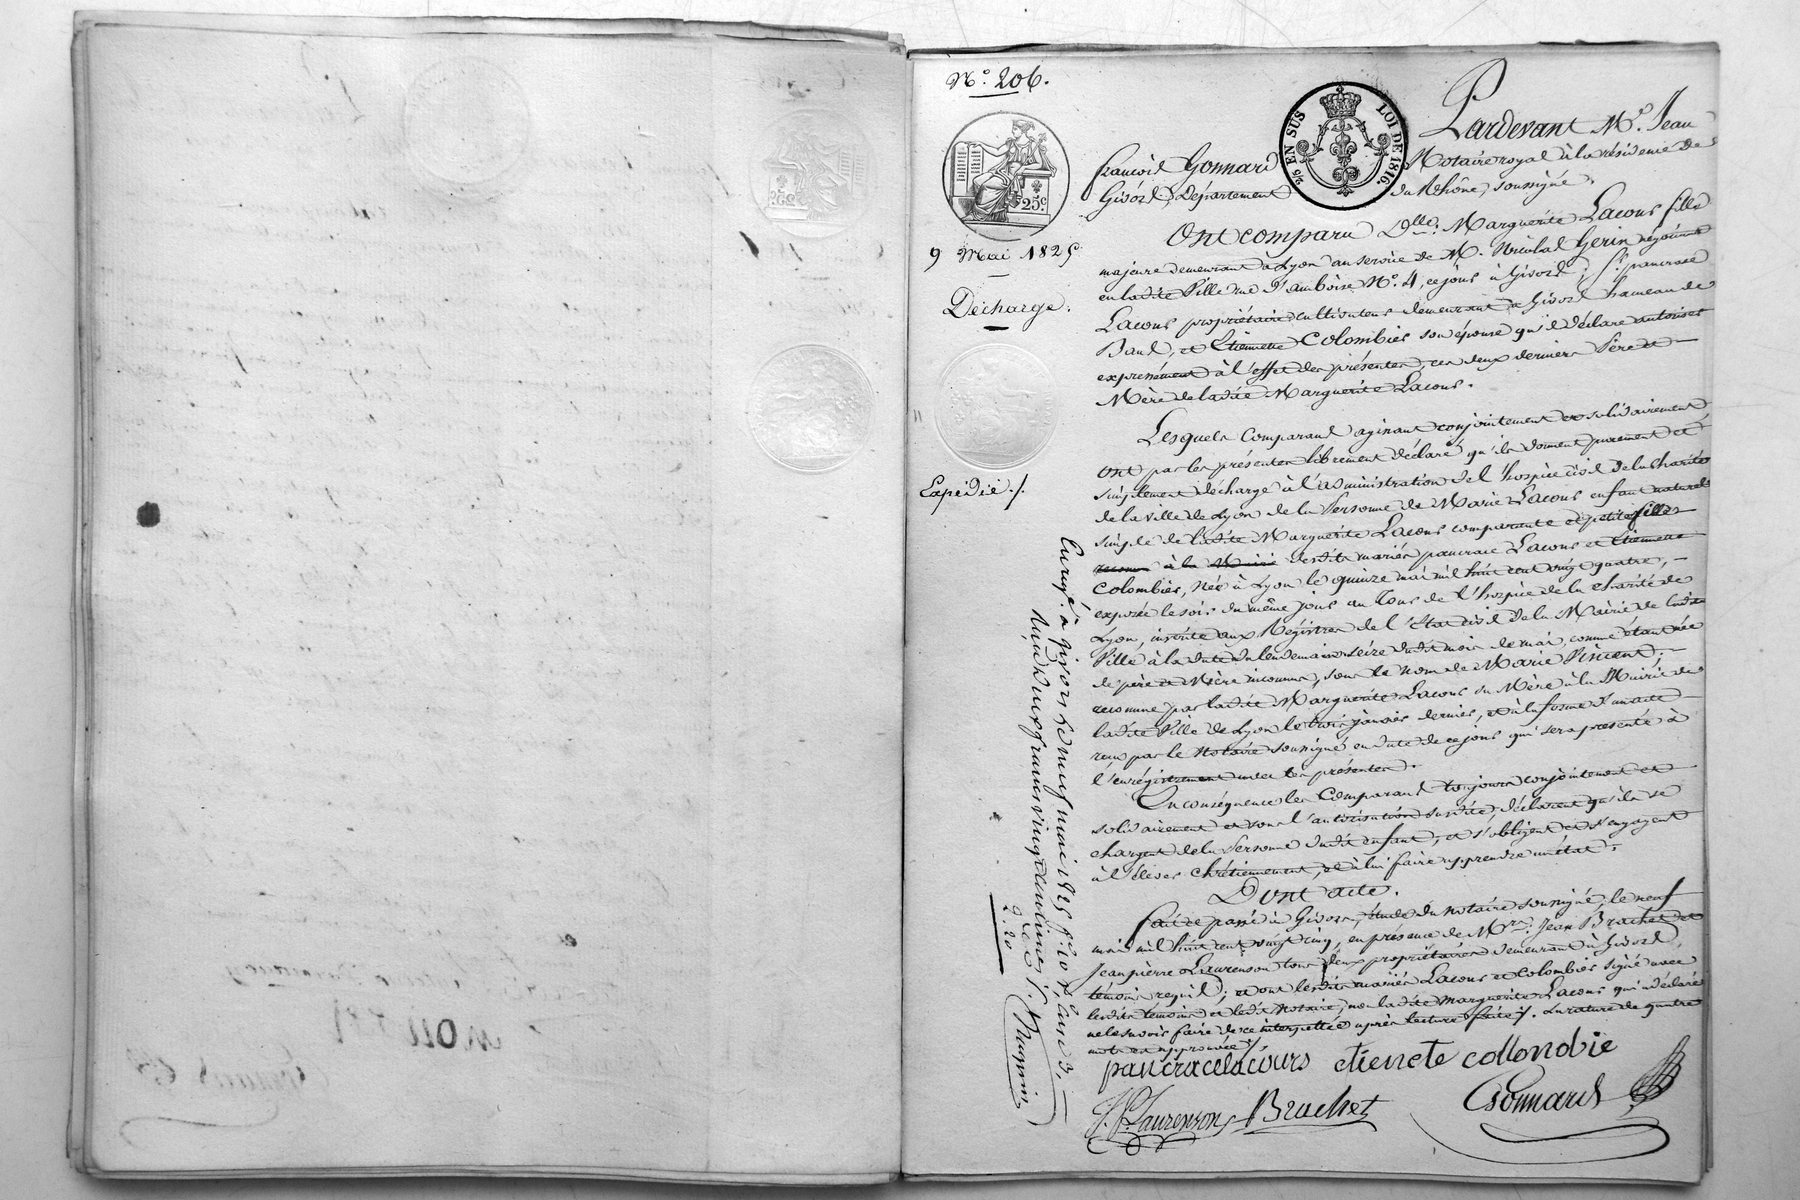 N.° 206.
25.c
2/5 EN SUS LOI DE 1816.
9 Mai 1825
Décharge.
Expédié ./.
Pardevant M.e Jean
françois Gonnard Notaire royal à la résidence de
Givors, Département du Rhône, soussigné.
Ont comparu D.lle Marguerite Lacour fille
majeure demeurant à Lyon au service de M. Nicolas Gerin négociant
en ladite Ville rue d'amboise N.° 4, ce jour à Givors; S.r pancrace
Lacour propriétaire cultivateur demeurant à Givors hameau de
Bans, et Etiennette Colombier son épouse qu'il déclare autoriser
expressément à l'effet des présentes, ces deux derniers Père et
Mère de ladite Marguerite Lacour.
Lesquels Comparans agissant conjointement et solidairement
ont par les présentes librement déclaré qu'ils donnent purement et
simplement décharge à l'administration de l'hospice civil de la charité
de la ville de Lyon de la Personne de Marie Lacour enfant naturel
simple de ladite Marguerite Lacour comparante et petite fille
à la desdits mariés pancrace Lacour et Etiennette
Colombier, Née à Lyon le quinze mai mil huit cent vingt quatre,
exposée le soir du même jour au Tour de l'hospice de la charité de
Lyon, inscrite aux Régistres de l'Etat civil de la Mairie de ladite
Ville à la date du lendemain seize dudit mois de mai, comme étant née
de père et Mère inconnus, sous le nom de Marie Vincent;
reconnue par ladite Marguerite Lacour sa Mère à la Mairie de
ladite Ville de Lyon le trois janvier dernier, et à la forme d'un acte
reçu par le Notaire soussigné en date de ce jour qui sera présenté à
l'enrégistrement avec les présentes.
En conséquence les Comparans toujours conjointement et
solidairement et sous l'autorisation susdite, déclarent qu'ils se
chargent de la Personne dudit enfant, et s'obligent et s'engagent
à l'élever chrétiennement, et à lui faire apprendre un état.
Dont acte.
fait et passé à Givors, étude du notaire soussigné, le neuf
mai mil huit cent vingt cinq, en présence de M.rs Jean Brachet et
Jean pierre Laurenson tous deux propriétaires demeurant à Givors,
témoins requis; et ont lesdits mariés Lacour et Colombier signé avec
lesdits témoins et ledit Notaire, non ladite Marguerite Lacour qui a déclaré
ne le savoir faire de ce interpellée après lecture faite ./. La rature de quatre
mots est approuvée ./.
pancrace lacours etienete collonobie
J. P. Laurenson Brachet Gonnard
Enregé à Givors le neuf mai 1825 f.° 10 v.° Case 3,
Reçu deux francs vingt centimes
2.20